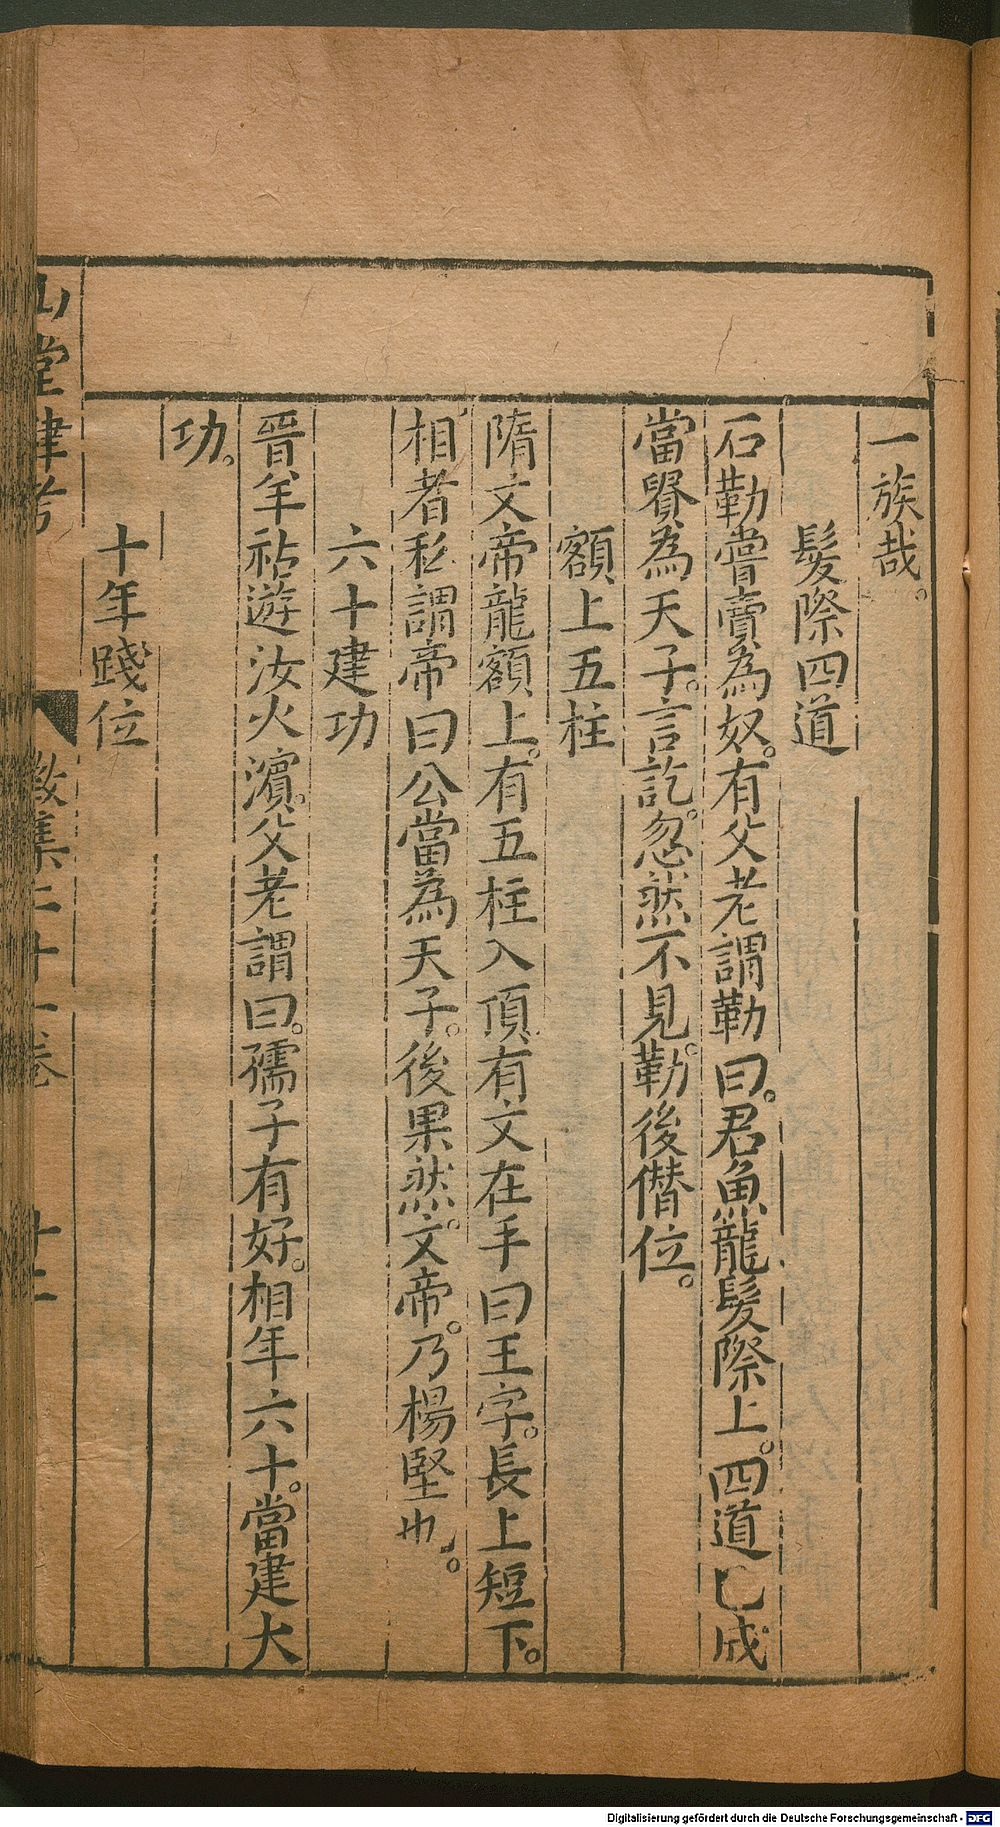 一族哉。
髮際四道
石勒嘗賣為奴。有父老謂勒曰。君魚龍髮際上。四道已成。
當貴為天子。言訖。忽然不見。勒後僭位。
額上五柱
隋文帝龍額上。有五柱入頂有文在手曰王字。長上短下。
相者私謂帝曰公當為天子。後果然。文帝。乃楊堅也。
六十建功
晉羊祜遊汶水濱。父老謂曰。孺子有好。相年六十。當建大
功。
十年踐位
山堂肆考
徵集二十一卷
十二
Digitalisierung gefördert durch die Deutsche Forschungsgemeinschaft - DFG